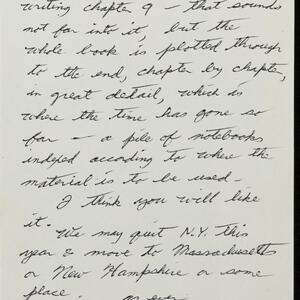 writing chapter 9 — that sounds
not far into it, but the
whole book is plotted through
to the end, chapter by chapter,
in great detail, which is
where the time has gone so
far — a pile of notebooks
indexed according to where the
material is to be used.
I think you will like
it.
We may quit N.Y. this
year & move to Massachusetts
or New Hampshire or some
place.
as ever